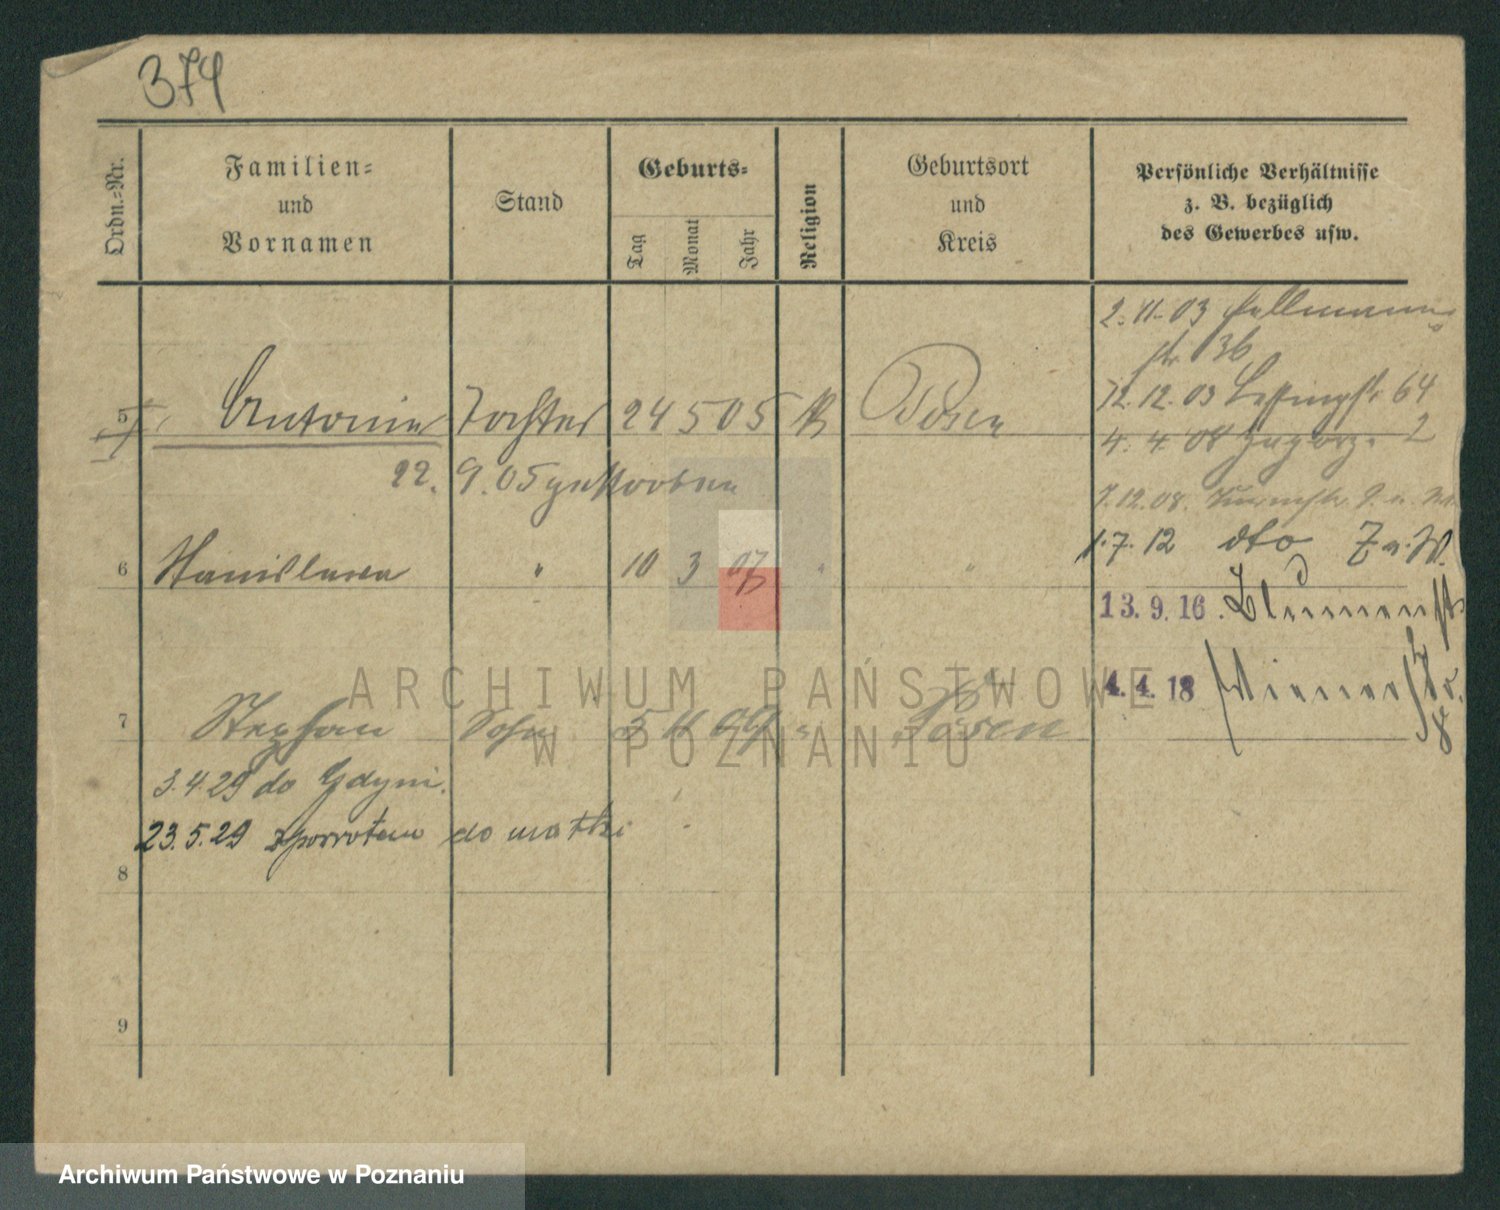 374
Ordn.-Nr.
Familien-
und
Vornamen
Stand
Geburts-
Tag
Monat
Jahr
Religion
Geburtsort
und
Kreis
Persönliche Verhältnisse
z. B. bezüglich
des Gewerbes usw.
2. 11. 03
str 36
12. 12. 03 Lessingstr. 64
5 Antonie Tochter 24 5 05 K Posen
4. 4. 08 2
22. 9. 05 gestorben
7. 12. 08.
1. 7. 12 dto 7 a. W.
6 Stanislawa " 10 3 07 " "
13. 9. 16. Blumenstr.
4. 4. 18 Wienerstr. 8
7 Stephan Sohn 5 11 09 " Posen
3. 4. 29 do Gdyni.
23. 5. 29 z powrotem do matki
8
9
ARCHIWUM PAŃSTWOWE
W POZNANIU
Archiwum Państwowe w Poznaniu